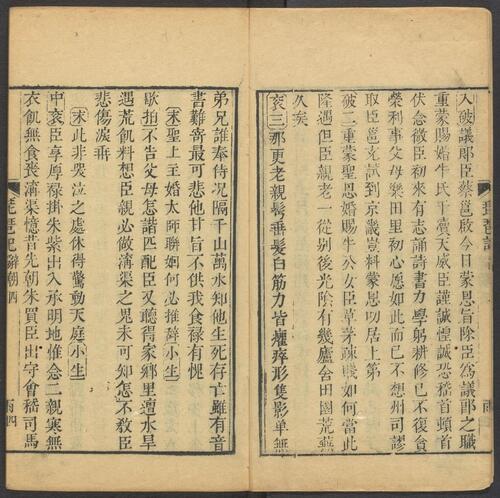 入破議郎臣蔡邕啟今日蒙恩旨除臣爲議郎之職
重蒙賜婚牛氏干凟天威臣謹誠惶誠恐稽首頓首
伏念微臣初來有志誦詩書力學躬耕修己不復貪
榮利事父母樂田里初心愿如此而已不想州司謬
取臣邕充試到京畿豈料蒙恩叨居上第
破二重蒙聖恩婚賜牛公女臣草茅疎賤如何當此
隆遇但臣親老一從别後光陰有幾廬舍田園荒蕪
久矣
袞三那更老親鬂垂髮白筋力皆癯瘁形隻影单無
弟兄誰奉侍况隔千山萬水知他生死存亡雖有音
書難寄最可悲他甘旨不供我食禄有愧
末聖上主婚太師聯姻何必推辭小生
歇拍不告父母怎諧匹配臣又聽得家鄉里遭水旱
遇荒飢料想臣親必做溝渠之鬼未可知怎不教臣
悲傷淚垂
末此非哭泣之處休得驚動天庭小生
中袞臣享厚禄掛朱紫出入承明地惟念二親寒無
衣飢無食喪溝渠憶昔先朝朱買臣出守會稽司馬
琵琶記
辭朝 四
雨四